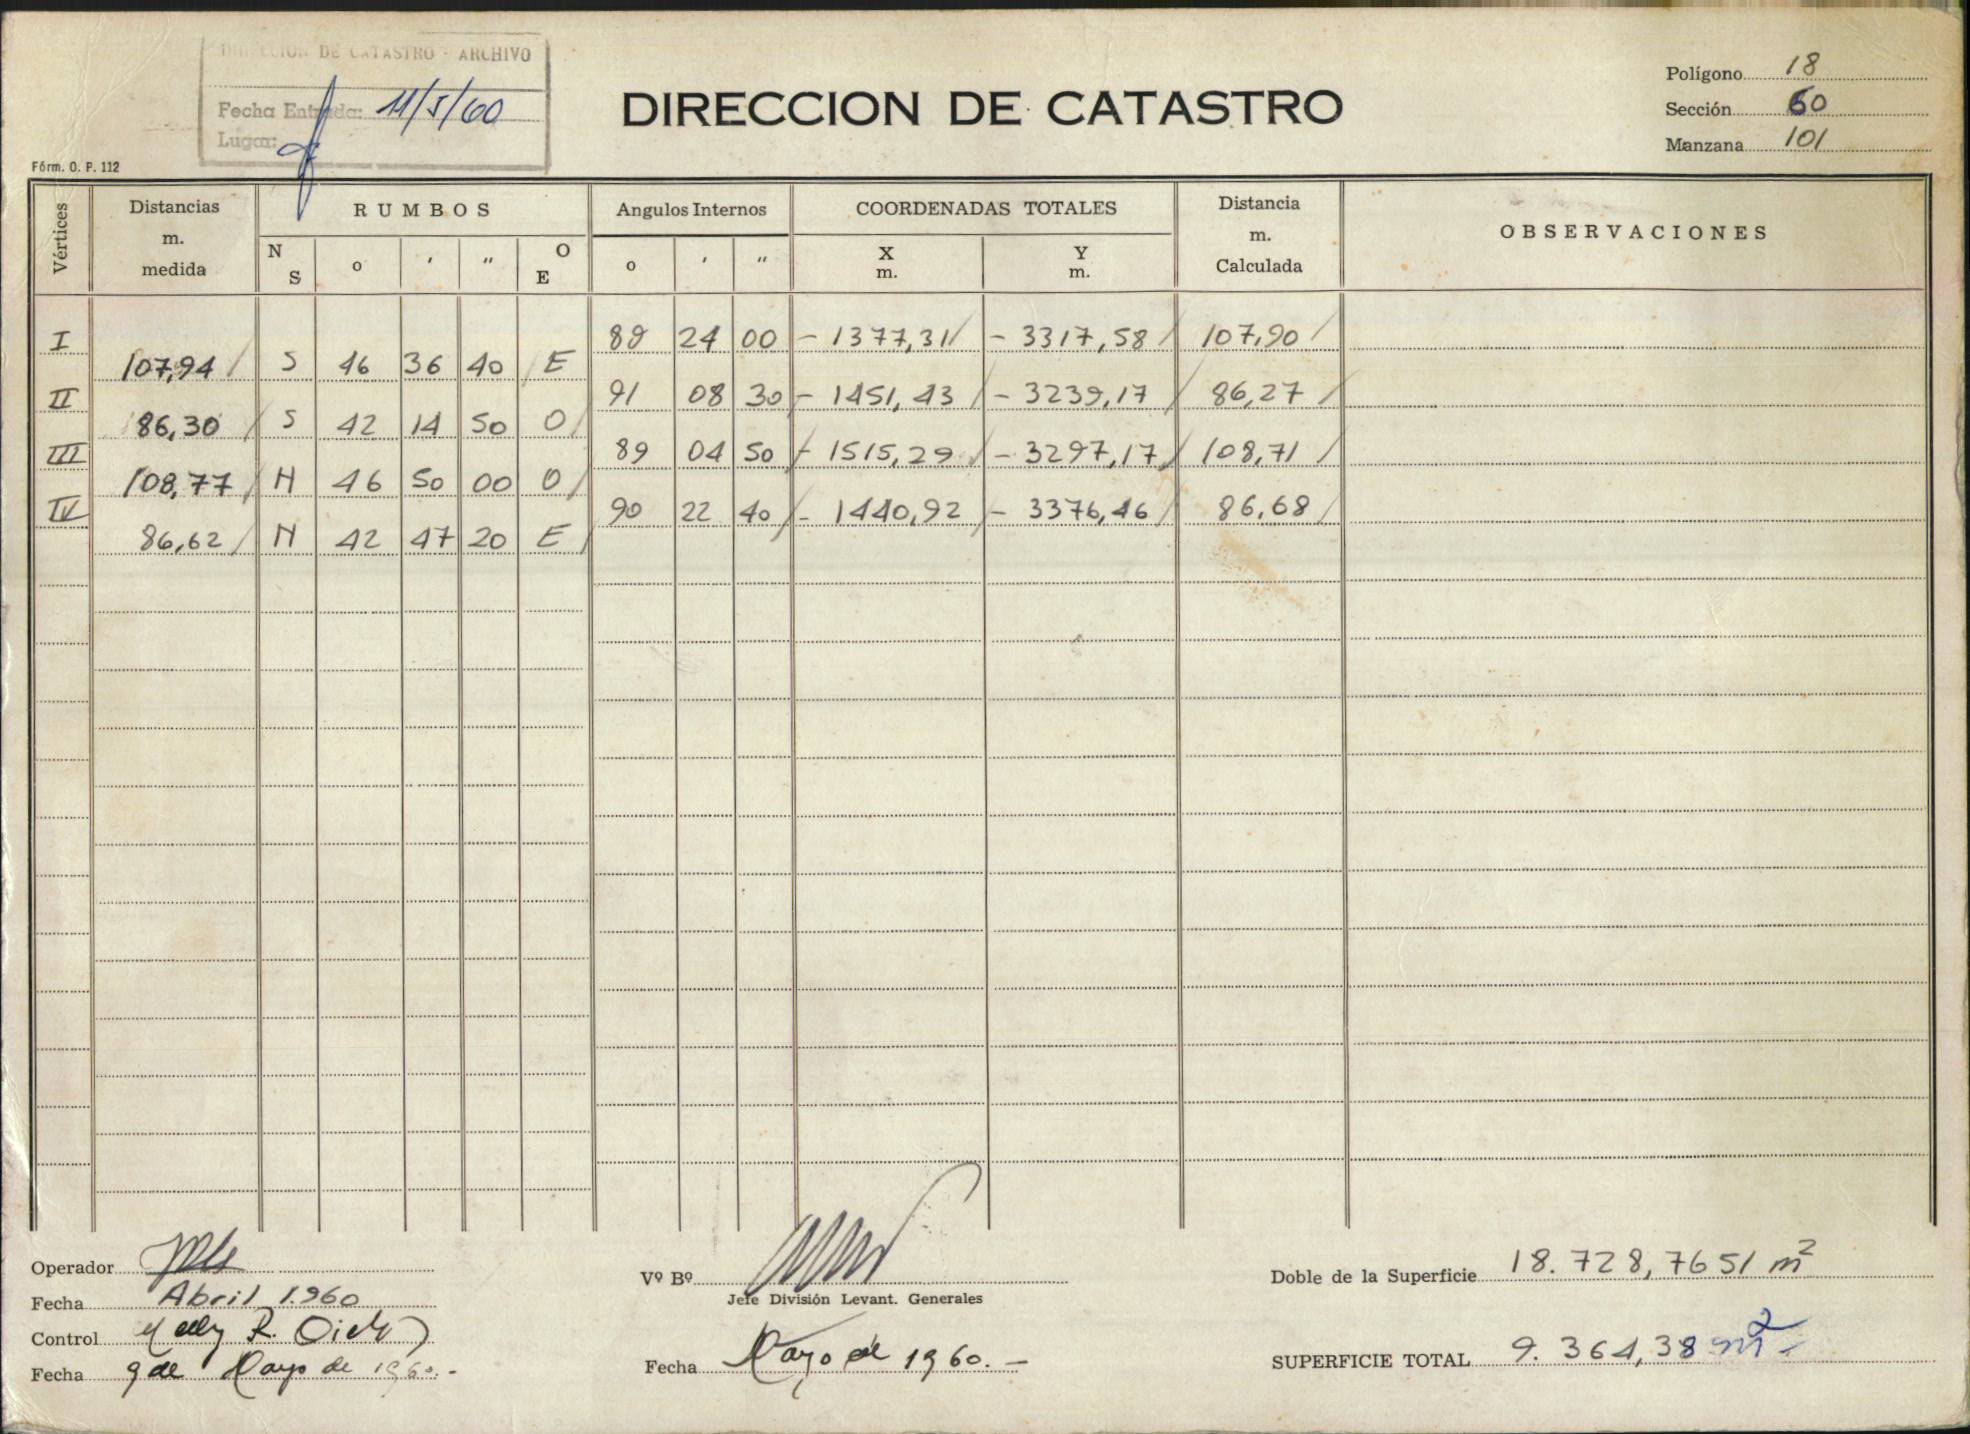 DIRECCION DE CATASTRO - ARCHIVO
Fecha Entrada: 11/5/60
Lugar:
DIRECCION DE CATASTRO
Polígono 18
Sección 60
Manzana 101
Fórm. O. P. 112
Vértices Distancias m. medida RUMBOS Angulos Internos COORDENADAS TOTALES Distancia m. Calculada OBSERVACIONES
N S o ' " O E o ' " X m. Y m.
I 89 24 00 - 1377,31 - 3317,58 107,90
107,94 S 46 36 40 E
II 91 08 30 - 1451,43 - 3239,17 86,27
86,30 S 42 14 50 O
III 89 04 50 - 1515,29 - 3297,17 108,71
108,77 N 46 50 00 O
IV 90 22 40 - 1440,92 - 3376,46 86,68
86,62 N 42 47 20 E
Operador
Fecha Abril 1.960
Control R.
Fecha 9 de Mayo de 1960.-
Vº Bº
Jefe División Levant. Generales
Fecha Mayo de 1960.-
Doble de la Superficie 18.728,7651 m²
SUPERFICIE TOTAL 9.364,38 m².-